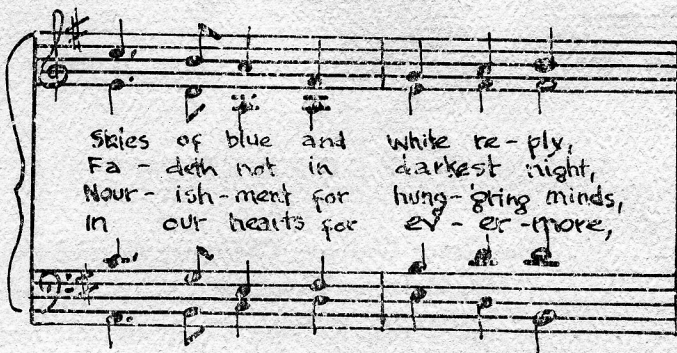 Skies of blue and white re-ply,
Fa-deth not in darkest night,
Nour-ish-ment for hung-'ring minds,
In our hearts for ev-er-more,